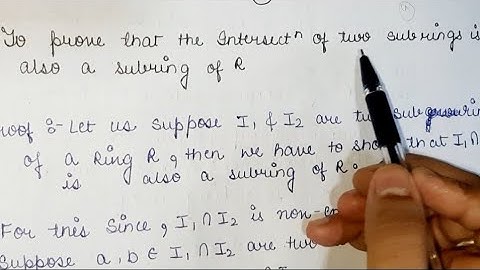 To prove that the Intersectⁿ of two subrings is
also a subring of R
roof :- Let us suppose I₁ & I₂ are two sub
of a Ring R, then we have to show that I₁∩
is also a subring of R.
For this Since, I₁∩I₂ is non-
Suppose a, b ∈ I₁∩I₂ are two